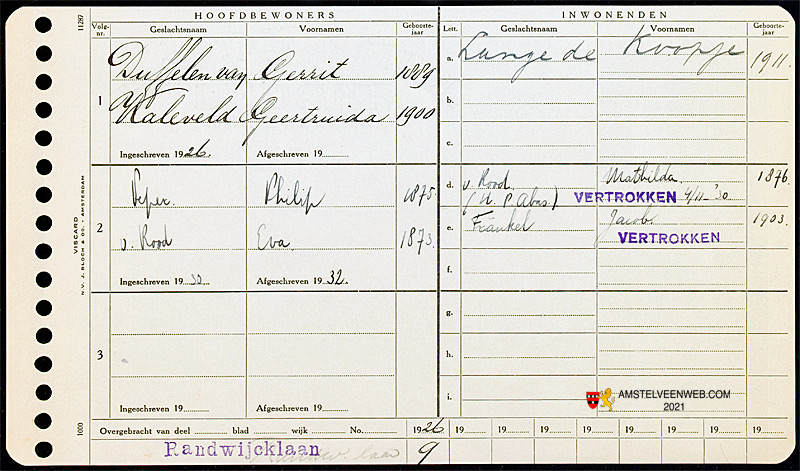 HOOFDBEWONERS
INWONENDEN
11287
Volg-nr.
Geslachtsnaam
Voornamen
Geboorte-jaar
Lett.
Geslachtsnaam
Voornamen
Geboorte-jaar
1
Duffelen van Gerrit 1889
Kaleveld Geertruida 1900
Ingeschreven 1926. Afgeschreven 19
a. Lange de Koopje 1911
b.
c.
2
Peper. Philip 1875
v. Rood Eva 1873.
Ingeschreven 1930 Afgeschreven 1932.
d. v. Rood Mathilda 1876
VERTROKKEN 4/11-'30
e. Fränkel Jacob. 1903
VERTROKKEN
f.
3
Ingeschreven 19 Afgeschreven 19
g.
h.
i.
VISCARD
N.V. J. BLOCH & CO. - AMSTERDAM
1000
AMSTELVEENWEB.COM
2021
Overgebracht van deel blad wijk No. 1926 19 19 19 19 19 19 19 19 19
Randwijcklaan
9